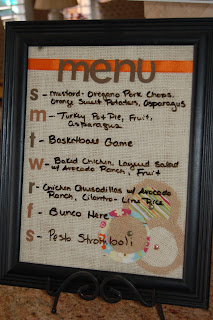 menu
s - Mustard-Oregano Pork Chops,
Orange Sweet Potatoes, Asparagus
m - Turkey Pot Pie, Fruit,
Asparagus
t - Basketball Game
w - Baked Chicken, Layered Salad
w/ Avocado Ranch, Fruit
r - Chicken Quesadillas w/ Avocado
Ranch, Cilantro-Lime Rice
f - Bunco Here
s - Pesto Stromboli